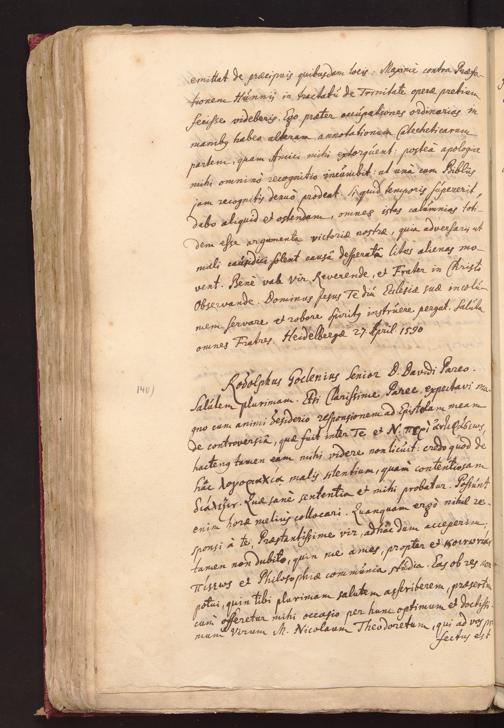 emittat de præcipuis quibusdam locis: Maximè contra Præfa-
tionem Hunnij in tractatu de Trinitate operæ pretium
fecisse videberis. Ego præter occupationes ordinarias in
manib9 habeo alteram annotationem Catecheticarum
partem, quam Amici mihi extorquent: posteà apologiæ
mihi omninò recognitio incumbit: ut unà cum Biblijs
jam recognitis denuò prodeat. Si quid temporis supererit,
dabo aliquid et ostendam, omnes istas calumnias toti-
dem esse argumenta victoriæ nostræ, quia adversarij ut
mali causidici solent causâ desperatâ lites alienas mo-
vent. Benè vale Vir Reverende, et Frater in Christo
Observande. Dominus Jesus Te diù Ecclesiæ suæ incolu-
mem servare et robore Spirit9 instruere pergat. Saluta
omnes Fratres. Heidelbergæ 27 April 1590
Rodolphus Goclenius Senior D. Davidi Pareo.
Salutem plurimam. Etsi Clarissime Paree, expectavi ma-
gno cum animi desiderio responsionem ad Epistolam meam
de controversia, quæ fuit inter Te et N. περὶ
hactenq tamen eam mihi videre non licuit: credo quod de
hâc λογομαχία malis silentium, quàm contentiosam
διάλεξιν. Quæ sanè sententia et mihi probatur. Possunt
enim horæ meliùs collocari. Quanquam ergò nihil re-
sponsi à te Præstantissime vir, adhûc dum acceperim,
tamen non dubito, quin me ames, propter et κοινωνίαν
πίστεως et Philosophiæ communia studia. Eas ob res non
potui, quin tibi plurimam salutem asscriberem, præsertim
cum offeretur mihi occasio per hunc optimum et doctissi-
mum Virum M. Nicolaum Theodoretum, qui ad vos pro
fectus est
140)